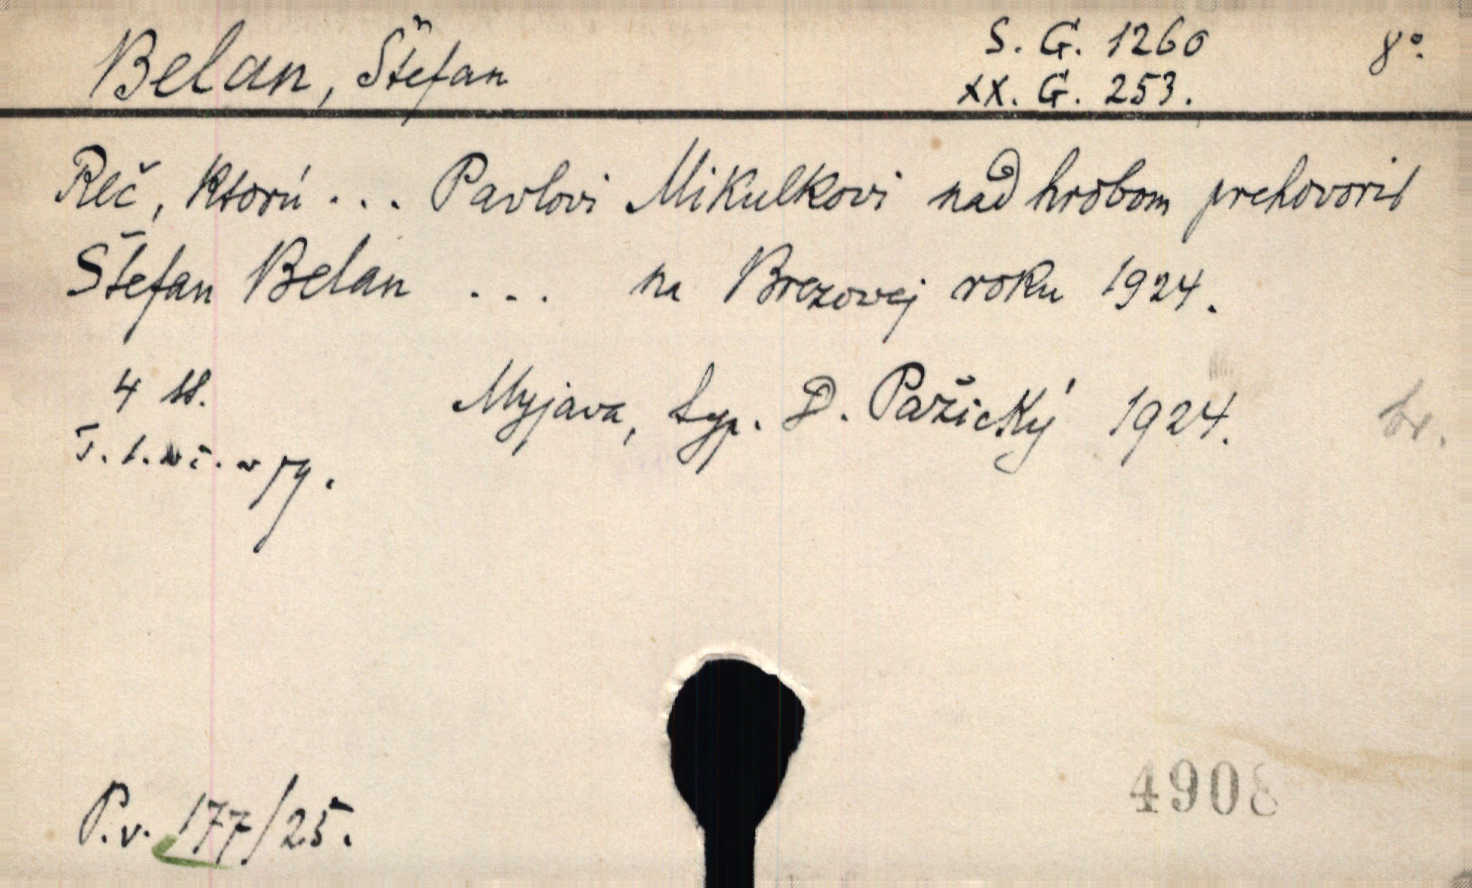 Belan, Štefan
S. G. 1260
XX. G. 253.
8°.
Reč, ktorú ... Pavlovi Mikulkovi nad hrobom prehovoril
Štefan Belan ... na Brezovej roku 1924.
4 ss.
Myjava, Typ. D. Pažický 1924.
br.
P.v. 177/25.
4908